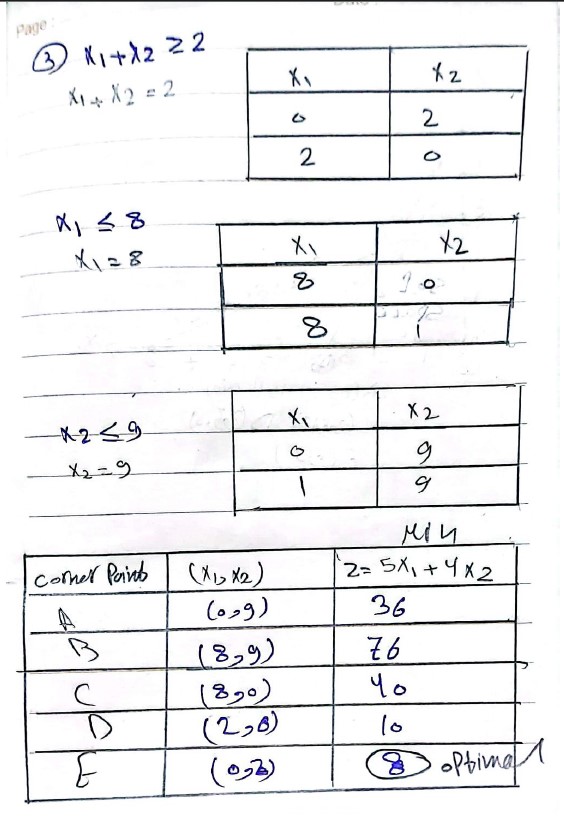 Page:
③ X1+X2 ≥ 2
X1+X2 = 2
X1 X2
0 2
2 0
X1 ≤ 8
X1 = 8
X1 X2
8 0
8 1
X2 ≤ 9
X2 = 9
X1 X2
0 9
1 9
Min
Corner Points (X1, X2) Z = 5X1 + 4X2
A (0,9) 36
B (8,9) 76
C (8,0) 40
D (2,0) 10
E (0,2) 8 optimal